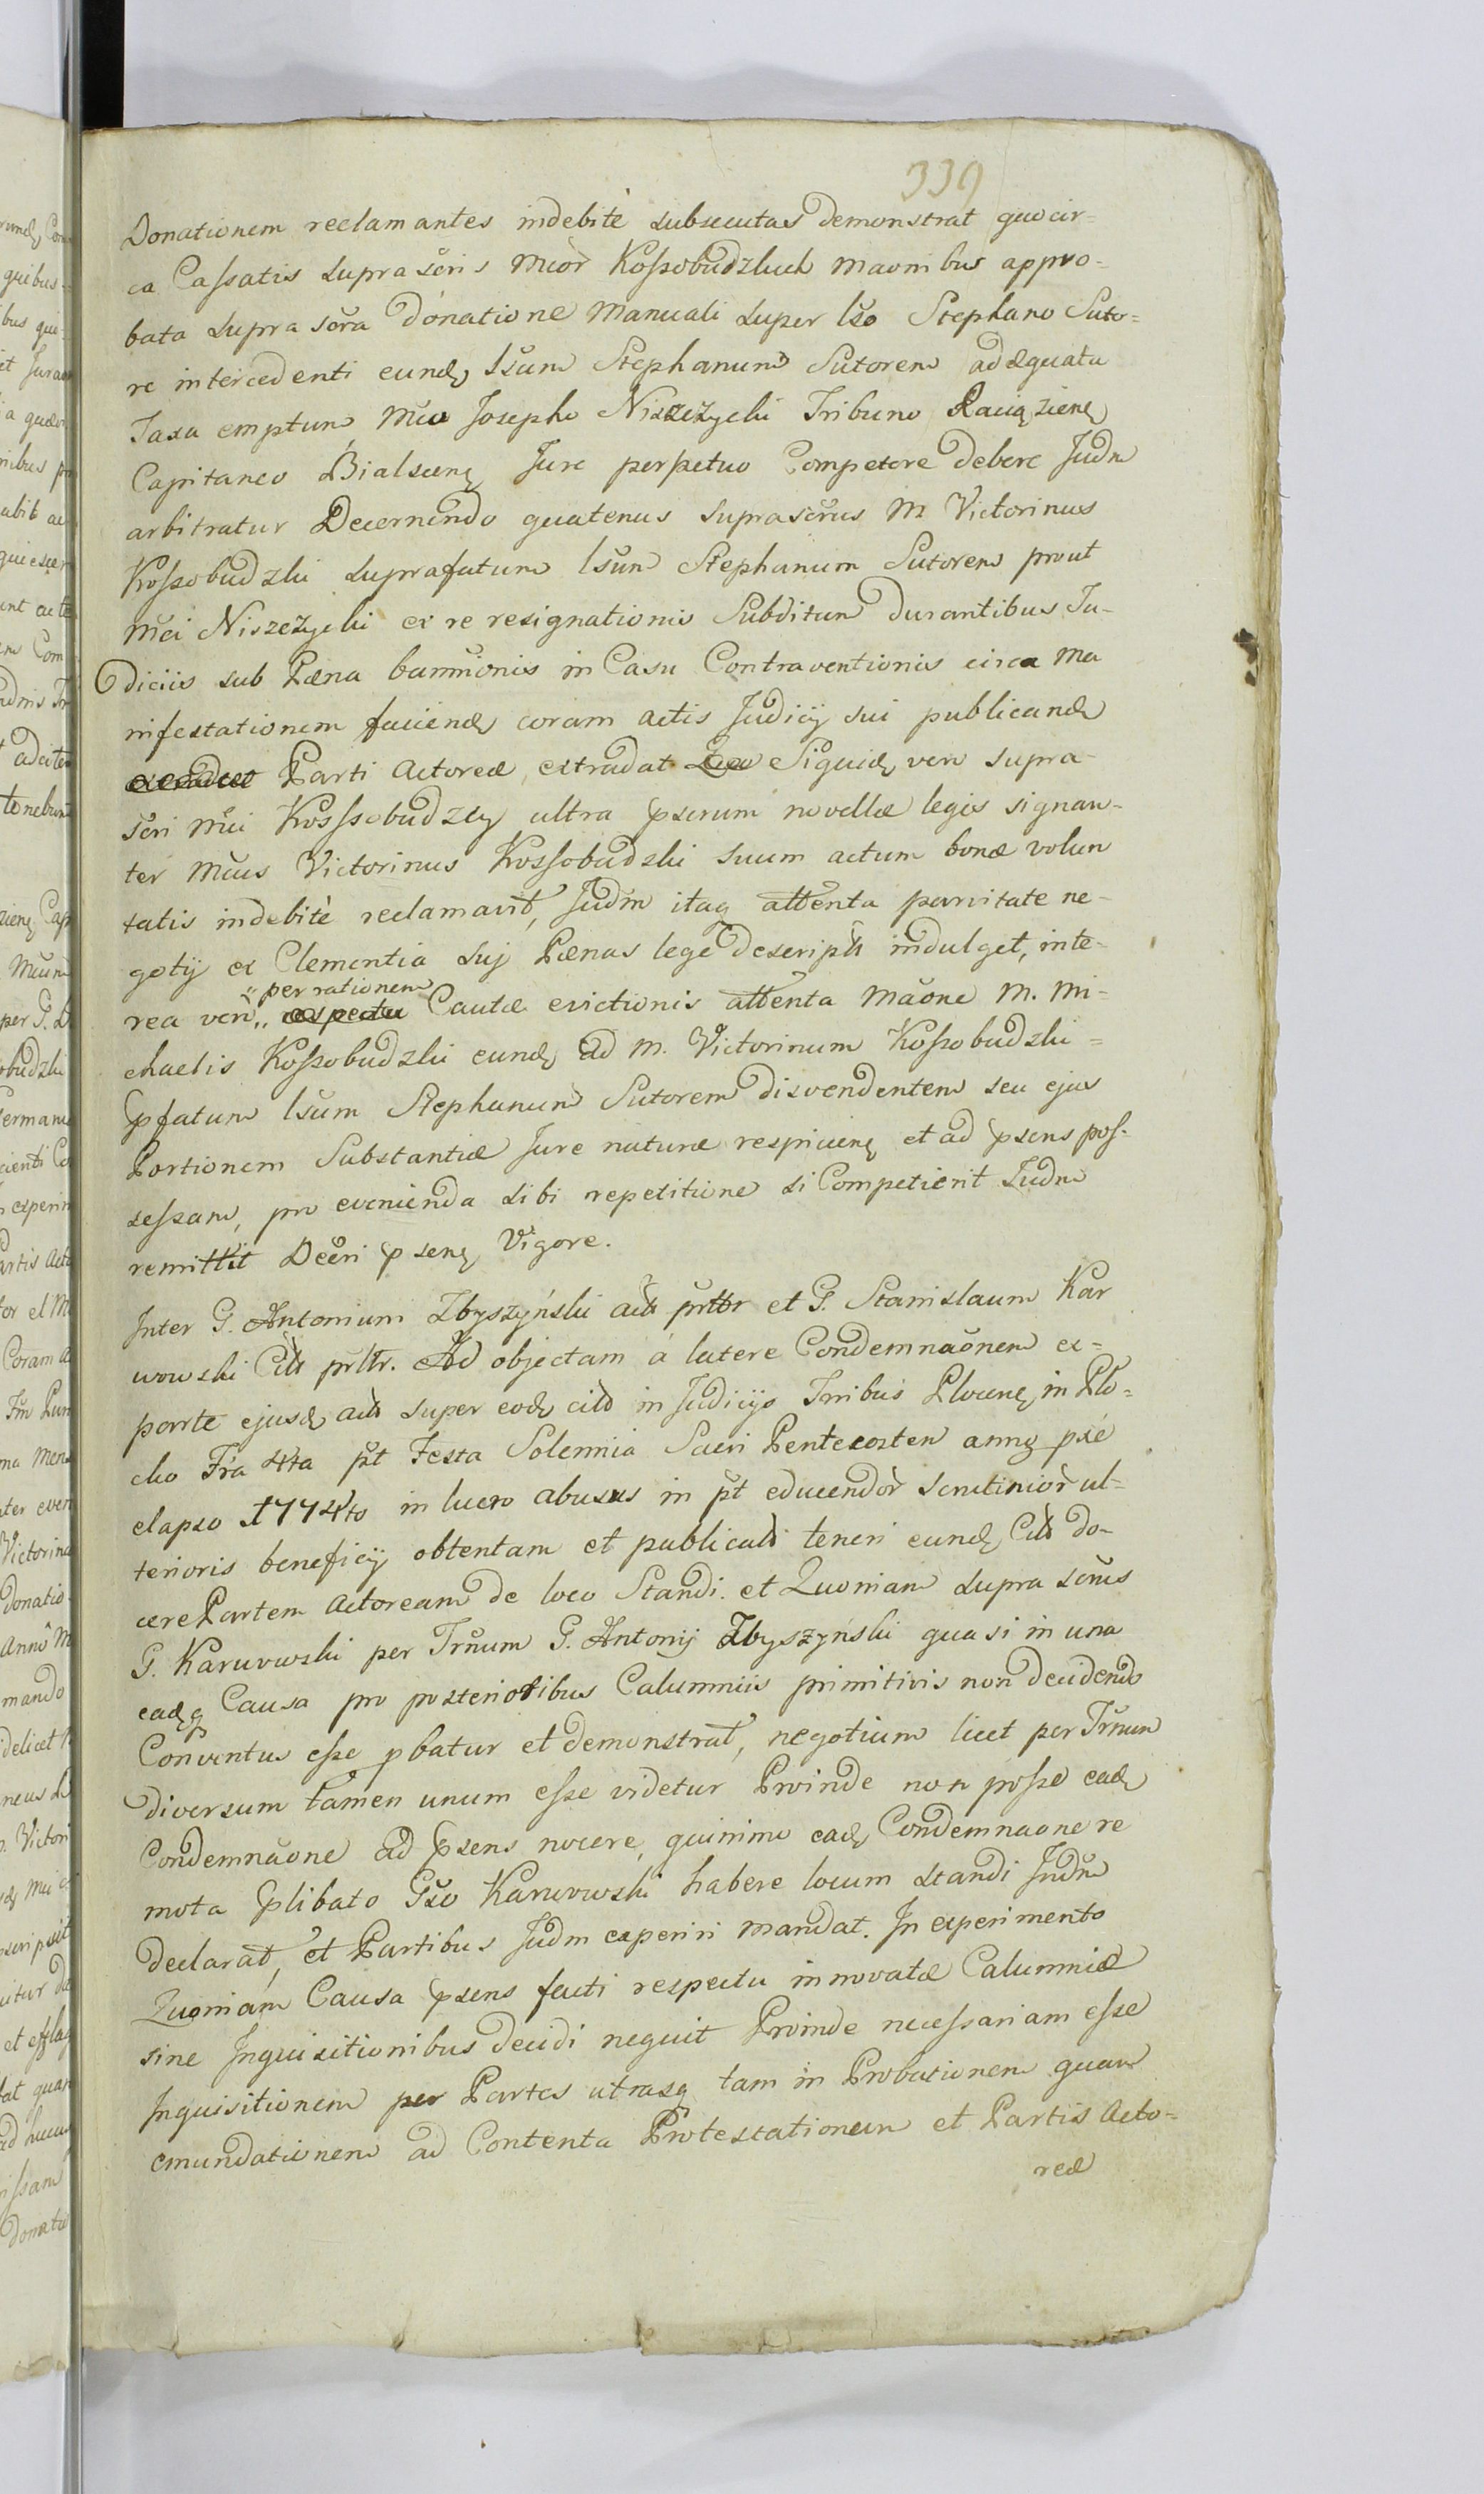 339
Donationem reclamantes indebite subsecutas demonstrat quocir=
ca Cassatis supra scris Mcor Kossobudzkich maonibus appro=
bata supra scra donatione Manuali super lso Stephano Suto=
re intercedenti eund, lsum Stephanum Sutorem adæquata
Taxa emptum Mco Josepho Niszczycki Tribuno Raciązienę
Capitaneo Bialscenę Jure perpetuo Competere debere Judm
arbitratur Decernendo quatenus suprascrus M Victorinus
Kossobudzki suprafatum lsum Stephanum Sutorem prout
Mci Niszczycki ex re resignationis Subditum durantibus Ju-
diciis sub Pæna bannionis in Casu Contraventionis circa Ma
nifestationem faciend, coram actis Judicij sui publicand,
Parti Actoreæ, extradat Siquid, vero supra-
scri Mci Kossobudzcy ultra pscrum novellæ legis signan-
ter Mcus Victorinus Kossobudzki suum actum bonæ volun
tatis indebitè reclamavit, Judm itaq attenta parvitate ne-
gotij ex Clementia suj Pænas lege descriptas indulget, inte-
per rationem
rea vero,, Cautæ evictionis attenta Maone M. Mi-
chaelis Kossobudzki eund, ad M. Victorinum Kossobudzki =
pfatum lsum Stephanum Sutorem disvendentem seu ejus
Portionem Substantiæ Jure naturæ respicienę et ad psens pos-
sessam, pro evenienda sibi repetitione si Competierit Judm
remittit Decri psenę Vigore.
Inter G. Antonium Zbyszyński actt prltr et G. Stanislaum Kar
wowski Citt prltr. Ad objectam à latere Condemnaonem ex=
parte ejusd, actt super eod, citt in Judicijs Tribus Plocenę in Plo=
cko Fra 4ta pt Festa Solennia Sacri Pentecosten anng præ
elapso 1774to in lucro abusus in pt educendor scrutinior ul-
terioris beneficij obtentam et publicatt teneri eund, Citt do-
cere Partem Actoream de loco Standi. et Quoniam supra scrus
G. Karwowski per Trnum G. Antonij Zbyszyński quasi in una
eadq, Causa pro posterioribus Calumniis primitivis non decidendo
Conventus esse pbatur et demonstrat, negotium licet per Trnum
diversum tamen unum esse videtur Proinde non posse ead,
Condemnaone ad psens nocere, quinimo ead, Condemnaone re
mota plibato Gso Karwowski habere locum standi Judm
declarat, et Partibus Judm experiri mandat. In experimento
Quoniam Causa psens facti respectu innovatæ Calumniæ
sine Inquisitionibus decidi nequit Proinde necessariam esse
Inquisitionem per Partes utrasq, tam in Probationem quam
emundationem ad Contenta Protestationem et Partis Acto=
reæ